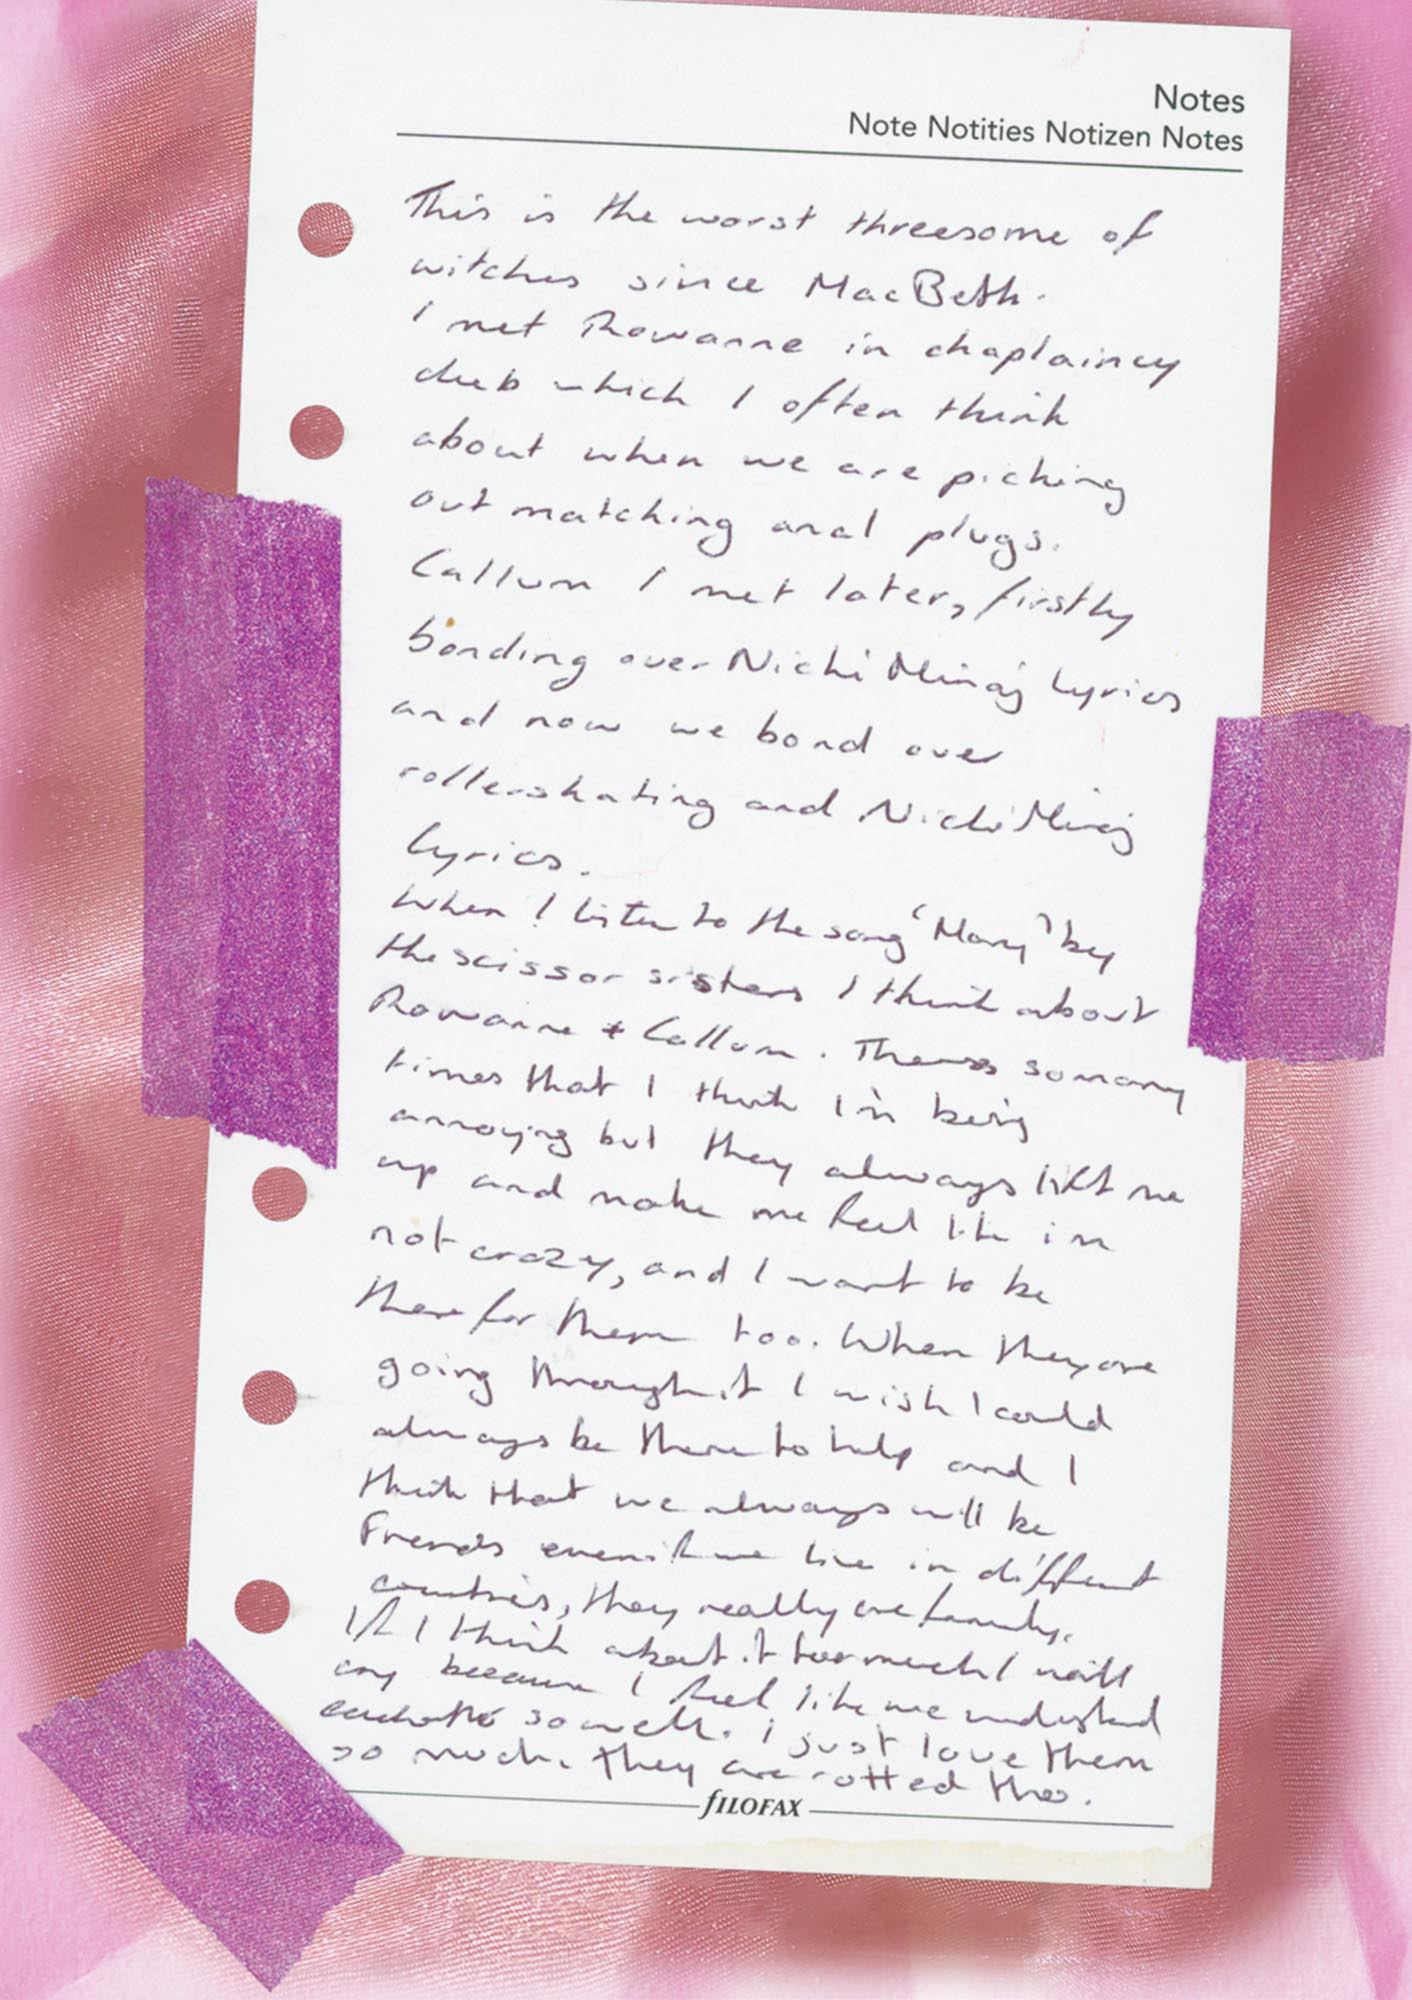 Notes
Note Notities Notizen Notes
This is the worst threesome of
witches since MacBeth.
I met Rowanne in chaplaincy
club which I often think
about when we are picking
out matching anal plugs.
Callum I met later, firstly
bonding over Nicki Minaj lyrics
and now we bond over
rollerskating and Nicki Minaj
lyrics.
When I listen to the song 'Mary' by
the scissor sisters I think about
Rowanne + Callum. Theres so many
times that I think I'm being
annoying but they always lift me
up and make me feel like im
not crazy, and I want to be
there for them too. When they are
going through it I wish I could
always be there to help and I
think that we always will be
Friends even if we live in different
countries, they really are family.
If I think about it too much I will
cry because I feel like we understand
each other so well. i just love them
so much. They are rotted tho.
FILOFAX